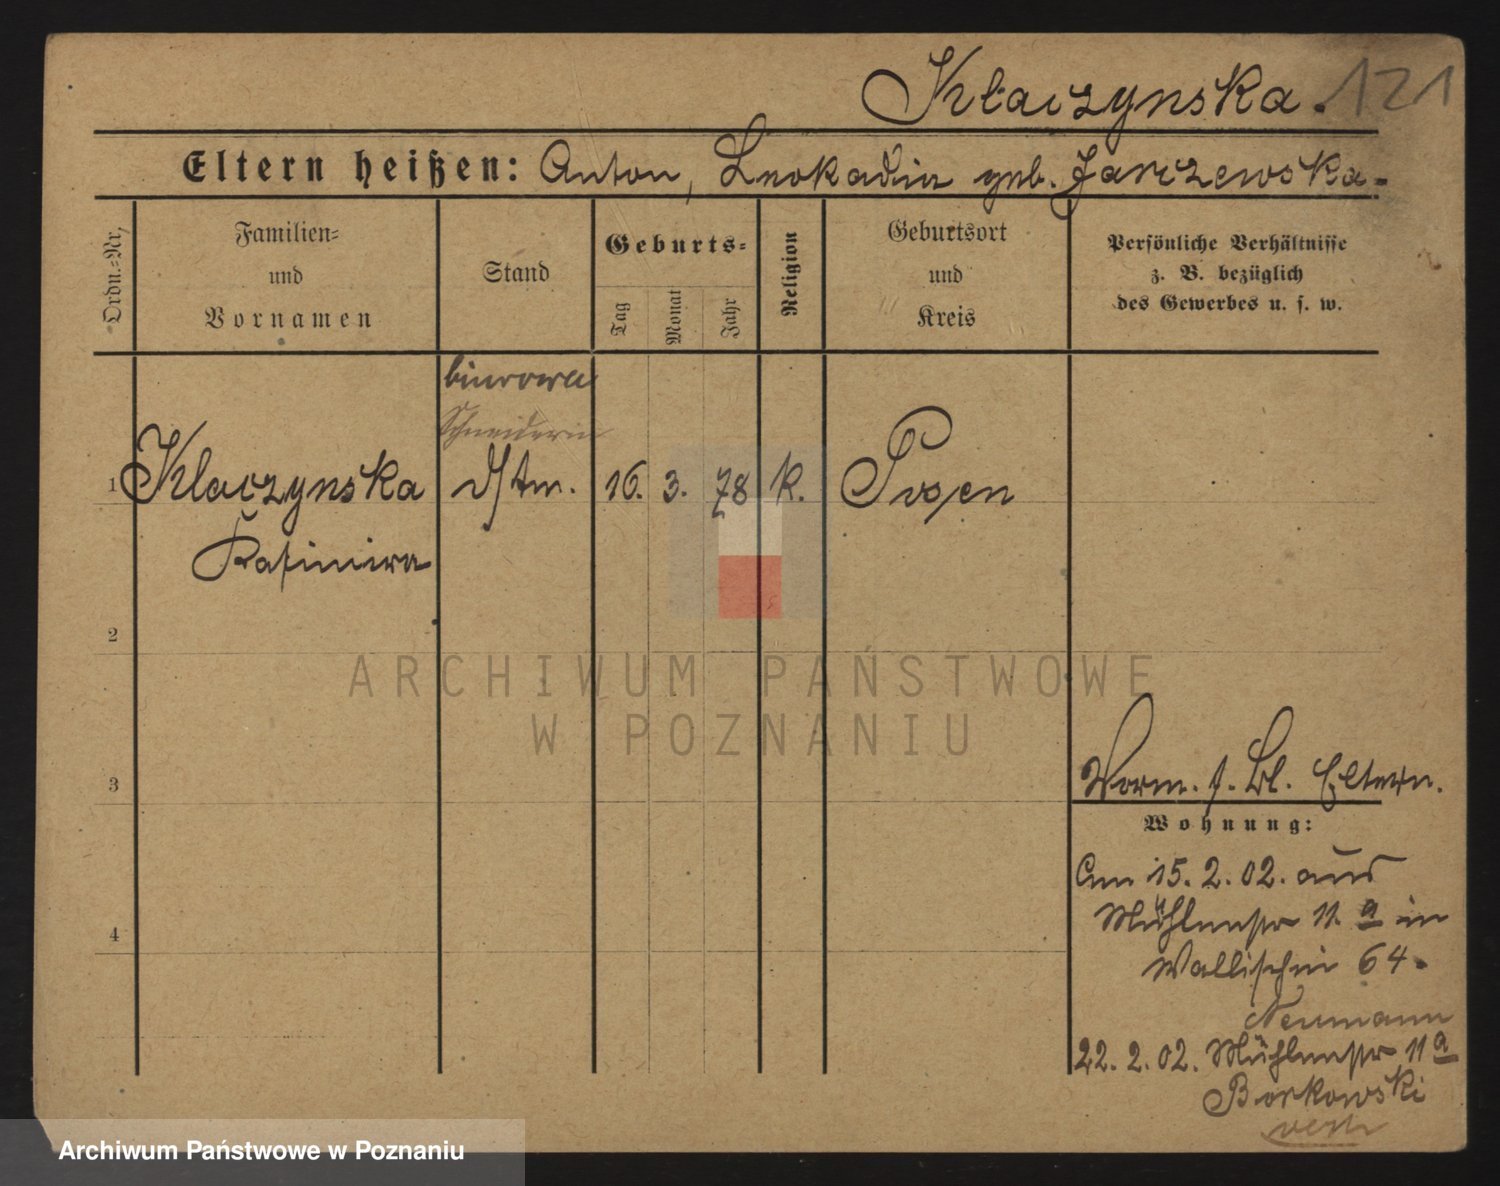 Kłaczynska. 121
Eltern heißen: Anton, Leokadia geb. Jarczewska.
Ordn.=Nr.
Familien=
und
Vornamen
Stand
Geburts=
Tag
Monat
Jahr
Religion
Geburtsort
und
Kreis
Persönliche Verhältnisse
z. B. bezüglich
des Gewerbes u. s. w.
biurowa
Schneiderin
1 Klaczynska 16. 3. 78 k. Posen
Kasimira
2
ARCHIWUM PAŃSTWOWE
W POZNANIU
3
Vorm. s. Bl. Eltern.
Wohnung:
Am 15. 2. 02. aus
Mühlenstr 11. a in
4
Wallischei 64.
Neumann
22. 2. 02. Mühlenstr 11 a
Borkowski
Archiwum Państwowe w Poznaniu